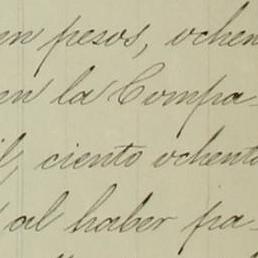 en pesos, ochen
en la Compa-
l, ciento ochenta
al haber pa-